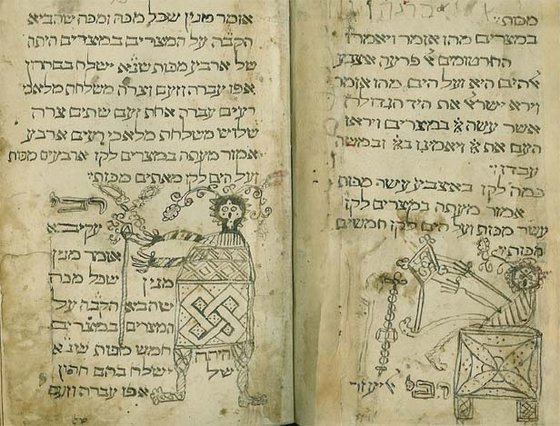 מכות
במצרים מהו אומר ויאמרו
החרטומים א׳ פרעה אצבע
אלהים היא ועל הים מהו אומר
וירא ישרא׳ את היד הגדולה
אשר עשה יי במצרים וייראו
העם את יי ויאמינו ביי ובמשה
עבדו
כמה לקו באצביע עשר מכות
אמור מעתה במצרים לקו
עשר מכות ועל הים לקו חמשים
מכות
רבי אליעזר
אומר מנין שכל מכה ומכה שהביא
הקבה על המצריים במצרים היתה
של ארביע מכות שנ׳א ישלח בם חרון
אפו עברה וזעם וצרה משלחת מלאכי
רעים עברה אחת זעם שתים צרה
שלוש משלחת מלאכי רעים ארבע
אמור מעתה במצרים לקו ארבעים מכות
ועל הים לקו מאתים מכות
רבי
עקיבא
אומר מנין
שכל מכה
שהביא הקבה על
המצריים במצרים
היתה
של
חמש מכות שנ׳א
ישלח בהם חרון
אפו עברה וזעם